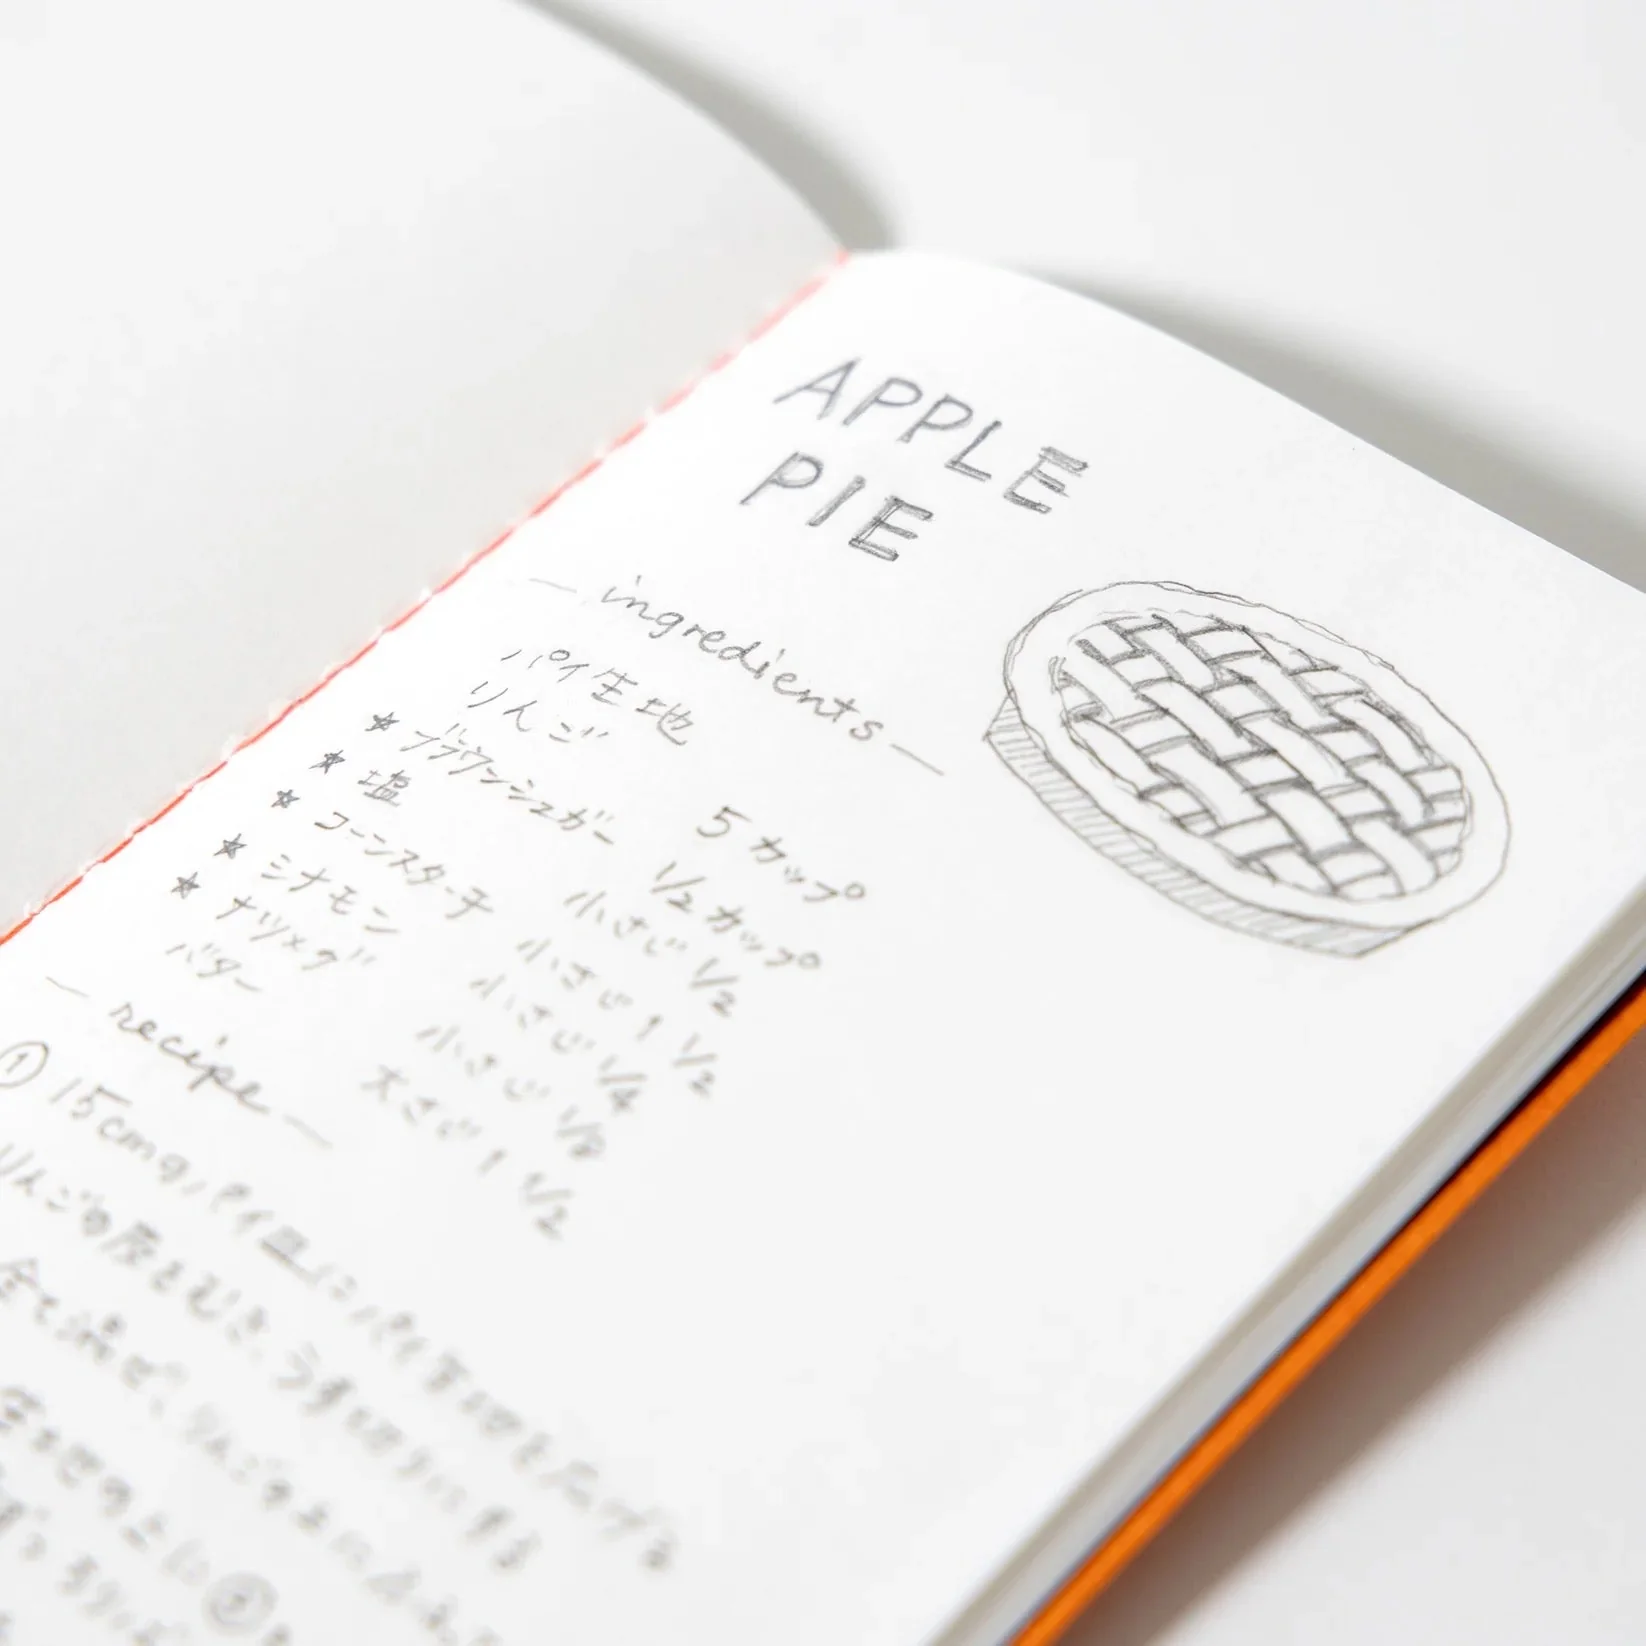 APPLE
PIE
— ingredients —
パイ生地
りんご 5カップ
★ ブラウンシュガー 1/2カップ
★ 塩 小さじ 1/2
★ コーンスターチ 小さじ 1 1/2
★ シナモン 小さじ 1/4
★ ナツメグ 小さじ 1/8
バター 大さじ 1 1/2
— recipe —
① 15cmのパイ皿にパイ生地を広げる
りんごの皮をむき、うす切りにする
全て混ぜ、りんごの上に
の上に ②